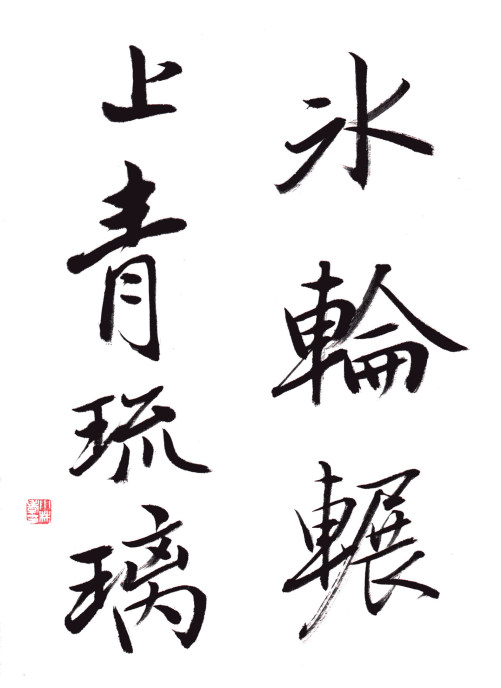 氷輪輾
上青琉璃